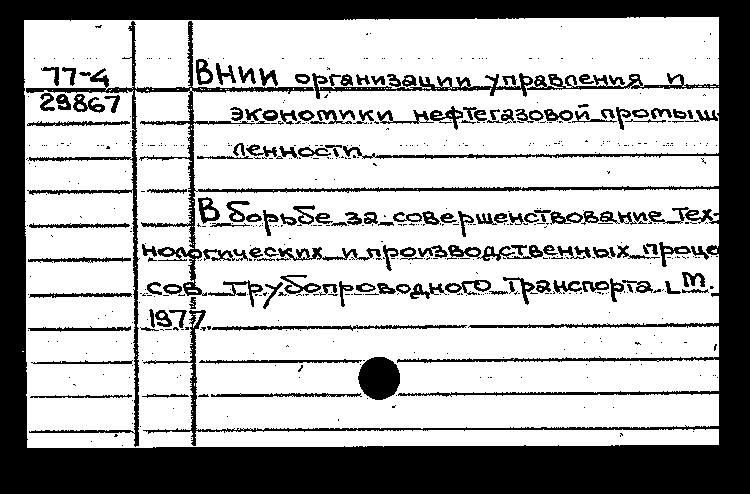 77-4 ВНИИ организации управления и
29867 экономики нефтегазовой промыш
ленности.
В борьбе за совершенствование тех-
нологических и производственных проце
сов трубопроводного транспорта М.
1977